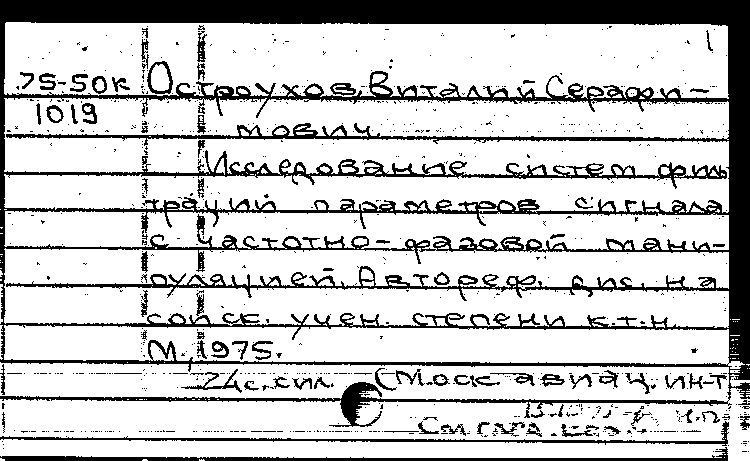 75-50к Остроухов, Виталий Серафи-
1019 мович.
Исследование систем филь
траций параметров сигнала
с частотно-фазовой мани-
пуляцией. Автореф. дис. на
соиск. учен. степени к.т.н.
М., 1975.
24с. с ил. (Моск. авиац. ин-т
См.